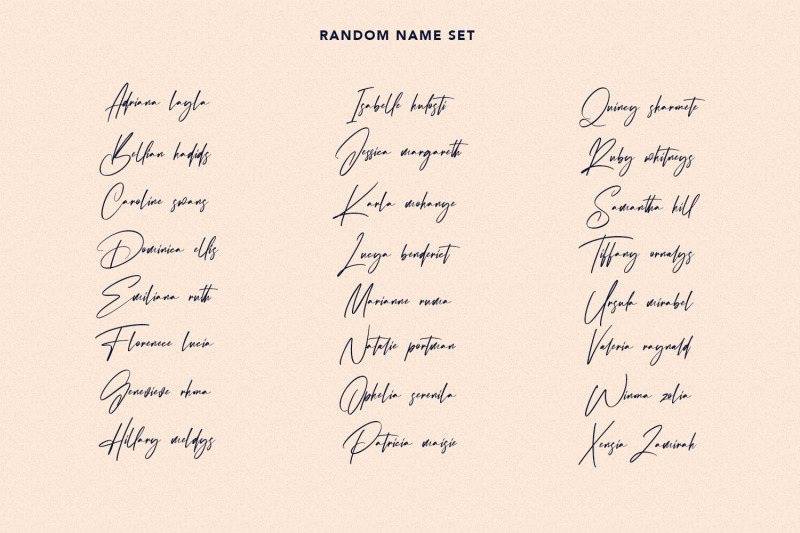 RANDOM NAME SET
Adriana layla
Bellian hadids
Caroline swans
Dominica ellis
Emiliana ruth
Florenece lucia
Genevieve rhma
Hillary meldys
Isabelle hubsti
Jessica margareth
Karla mohanye
Lucya benderict
Marianne ruma
Natalie portman
Ophelia serenila
Patricia maisie
Quincy sharmete
Ruby whitneys
Samantha hill
Tiffany ornalys
Ursula mirabel
Valeria raynald
Winona zolia
Xensia Zamirah